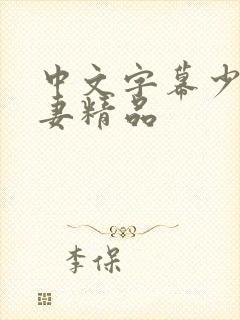 中文字幕少
妻精品
李保